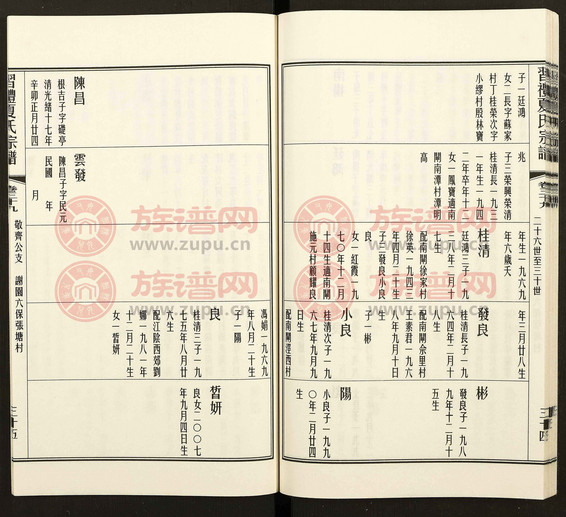 習禮夏氏宗譜
卷三九
二十六世至三十世
三十四
子一廷鴻
女二長字蘇家
村丁桂榮次字
小繆村殷林寶
兆
子三榮興榮清
桂清長一九三
一年生一九四
二年卒年十二
女一鳳寶適南
閘南潭村潭明
高
年生一九六九
年六歲夭
桂清
廷鴻三子一九
三八年二月十
七生
配南閘徐家村
徐英一九四三
年四月二十生
子三發良小良
良
女一紅霞一九
七〇年十二月
十四生適南閘
施元村顧耀良
年三月廿八生
發良
桂清長子一九
六四年二月十
八生
配南閘佘里村
王素君一九六
八年九月十日
生
子一彬
小良
桂清次子一九
六七年九月九
日生
配南閘徑西村
彬
發良子一九八
九年十二月十
五生
陽
小良子一九九
〇年二月廿四
生
馮娟一九六九
年八月二十生
子一陽
良
桂清三子一九
七五年八月廿
六生
配江陰西郊劉
鶴一九八一年
十二月二十生
女一皙妍
皙妍
良女二〇〇七
年九月四日生
陳昌
根吉子字礎亭
清光緒十七年
辛卯正月廿四
雲發
陳昌子字民元
民國 年
月
習禮夏氏宗譜
卷三九
敬齊公支 謝園六保張塘村
三十五
族谱网
www.zupu.cn
族谱网
www.zupu.cn
族谱网
www.zupu.cn
族谱网
www.zupu.cn